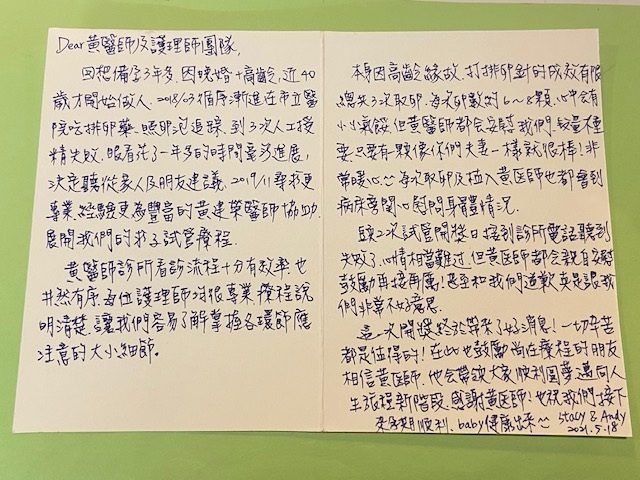 Dear 黃醫師及護理師團隊,
回想備孕3年多,因晚婚+高齡,近40
歲才開始做人.2018/03循序漸進在市立醫
院吃排卵藥、照卵泡追踪,到3次人工授
精失敗,眼看花了一年多的時間毫無進展,
決定聽從家人及朋友建議,2019/11尋求更
專業、經驗更為豐富的黃建榮醫師協助.
展開我們的求子試管療程.
黃醫師診所看診流程十分有效率也
井然有序,各位護理師均很專業,療程說
明清楚,讓我們容易了解掌握各環節應
注意的大小細節。
本身因高齡緣故,打排卵針的成效有限
總共3次取卵,每次卵數約6~8顆,心中會有
小小氣餒,但黃醫師都會安慰我們,數量不重
要,只要有一顆像你們夫妻一樣就很棒!非
常暖心~~每次取卵及植入黃醫師也都會到
病床旁關心慰問身體情況.
頭2次試管開獎日接到診所電話聽到
失敗了,心情相當難過,但黃醫師都會親自安慰
鼓勵再接再厲!甚至和我們道歉真是讓我
們非常不好意思.
這一次開獎終於等來了好消息!一切辛苦
都是值得的!在此也鼓勵尚在療程的朋友
相信黃醫師,他會帶領大家順利圓夢邁向人
生旅程新階段.感謝黃醫師!也祝我們接下
來孕期順利,baby健康出來~~ Stacy & Andy
2021.5.18